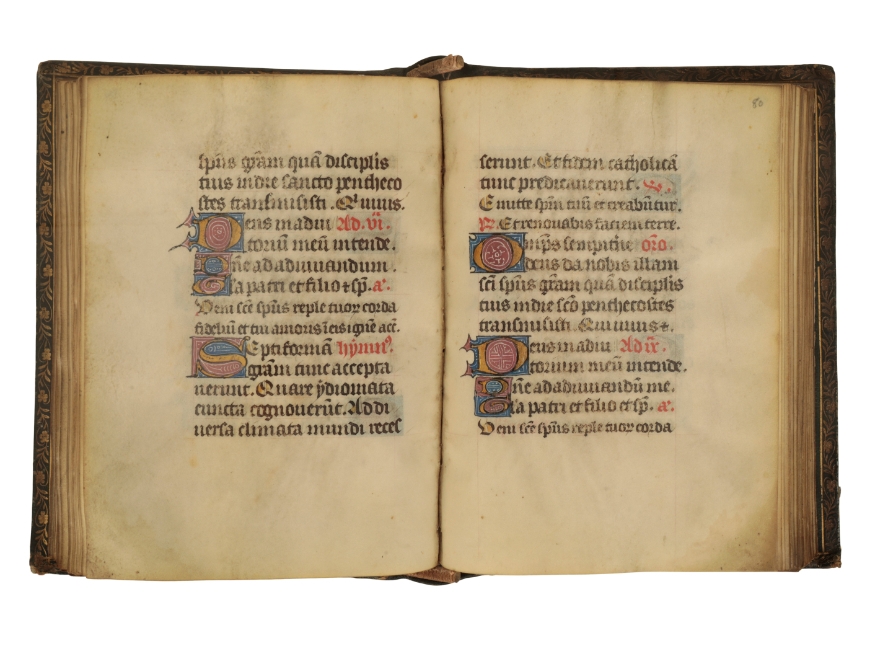 sp̄us gr̄am quā disciplis
tuis in die sancto pentheco
stes transmisisti. Qui uiuis.
Deus in adiu Ad. vī.
toriū meū intende.
Dn̄e ad adiuuandum.
Gl̄a patri et filio ⁊ sp̄. a̅.
Veni sc̄e sp̄us reple tuoꝝ corda
fideliū et tui amoris ī eis ignē acc̄.
Septiformā hymn᷒.
gr̄am tunc accepta
uerunt. Quare ydiomata
cuncta cognouerūt. Ad di
uersa climata mundi reces
80
serunt. Et fidem catholicā
tunc predicauerunt.
Emitte sp̄m tuū et creabūtur.
R̄. Et renouabis faciem terre.
Omp̄s sempitn̄e oro.
deus da nobis illam
sc̄i sp̄us gr̄am quā disciplis
tuis in die sc̄o penthecostes
transmisisti.
Deus in adiu Ad ix̄.
torium meū intende.
Dn̄e ad adiuuandū me.
Gl̄a patri et filio et sp̄. a̅.
Veni sc̄e sp̄us reple tuoꝝ corda